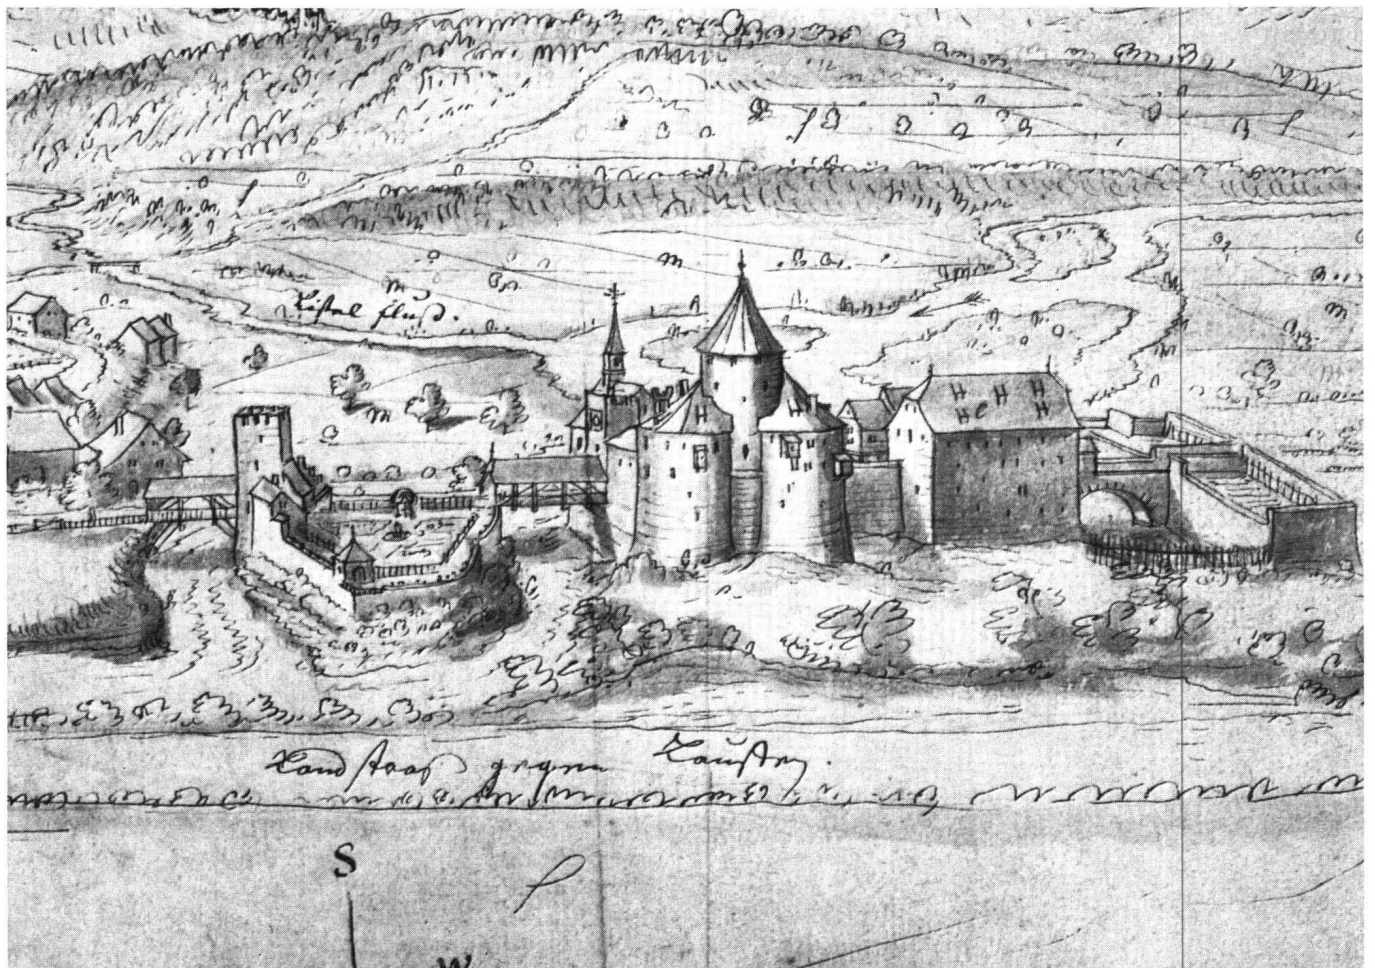 Lissel fluß.
Landstraß gegen Lauffen.
S
W